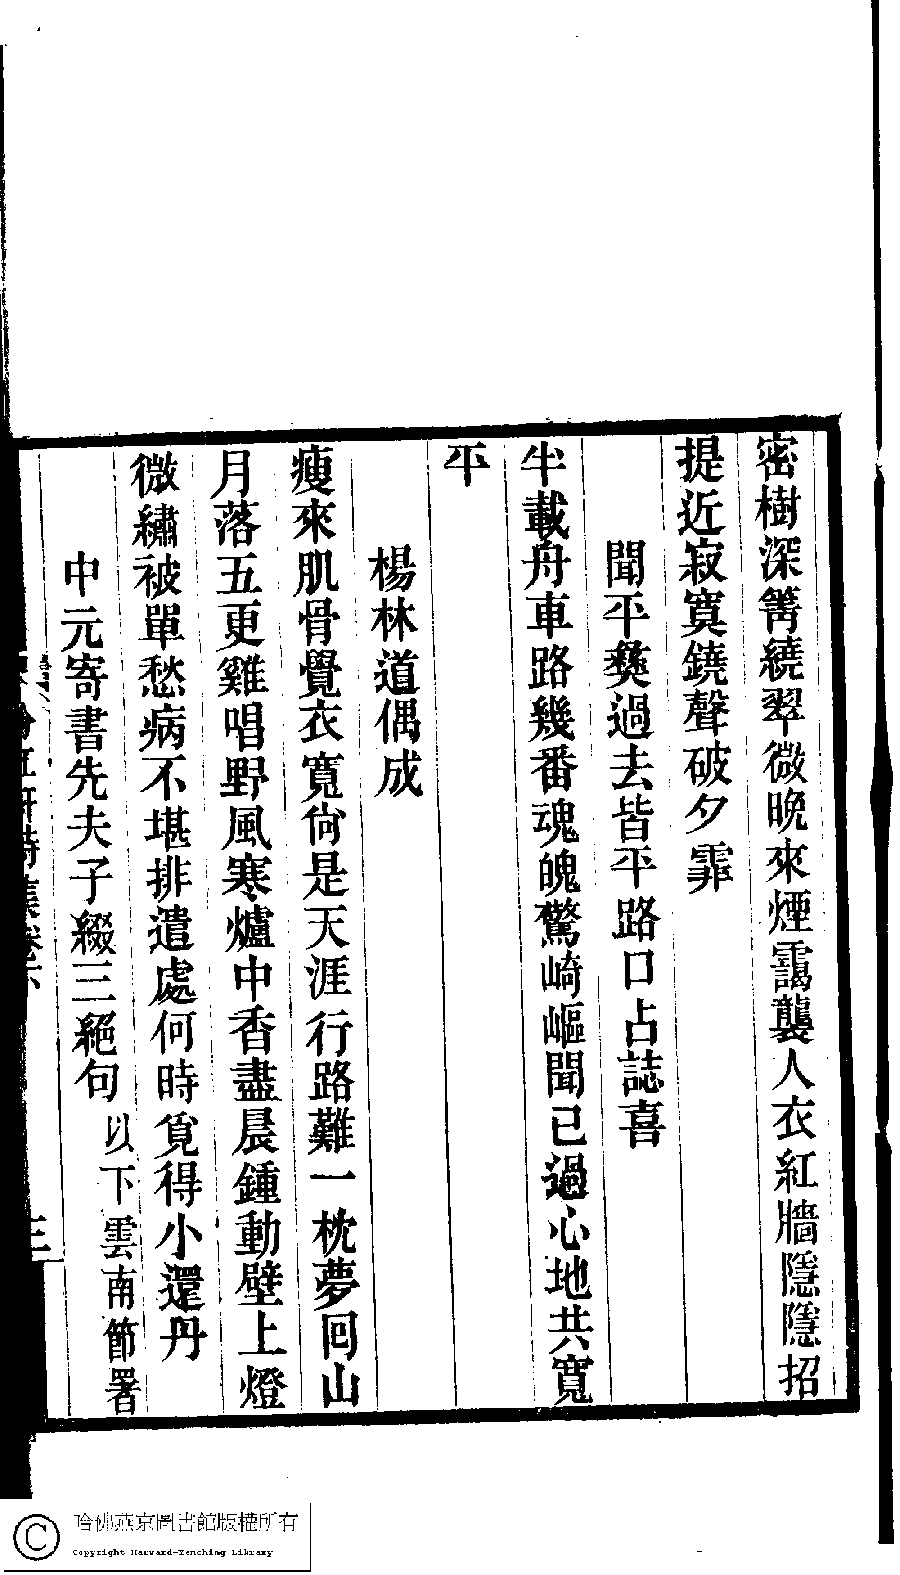 密樹深箐繞翠微晚來煙靄襲人衣紅牆隱隱招
提近寂寞鐃聲破夕霏
聞平彝過去皆平路口占誌喜
半載舟車路幾番魂魄驚崎嶇聞已過心地共寬
平
楊林道偶成
瘦來肌骨覺衣寬尙是天涯行路難一枕夢回山
月落五更雞唱野風寒爐中香盡晨鍾動壁上燈
微繡被單愁病不堪排遣處何時覓得小還丹
中元寄書先夫子綴三絕句以下雲南節署
詩集卷六
三
哈佛燕京圖書館版權所有
Copyright Harvard-Yenching Library